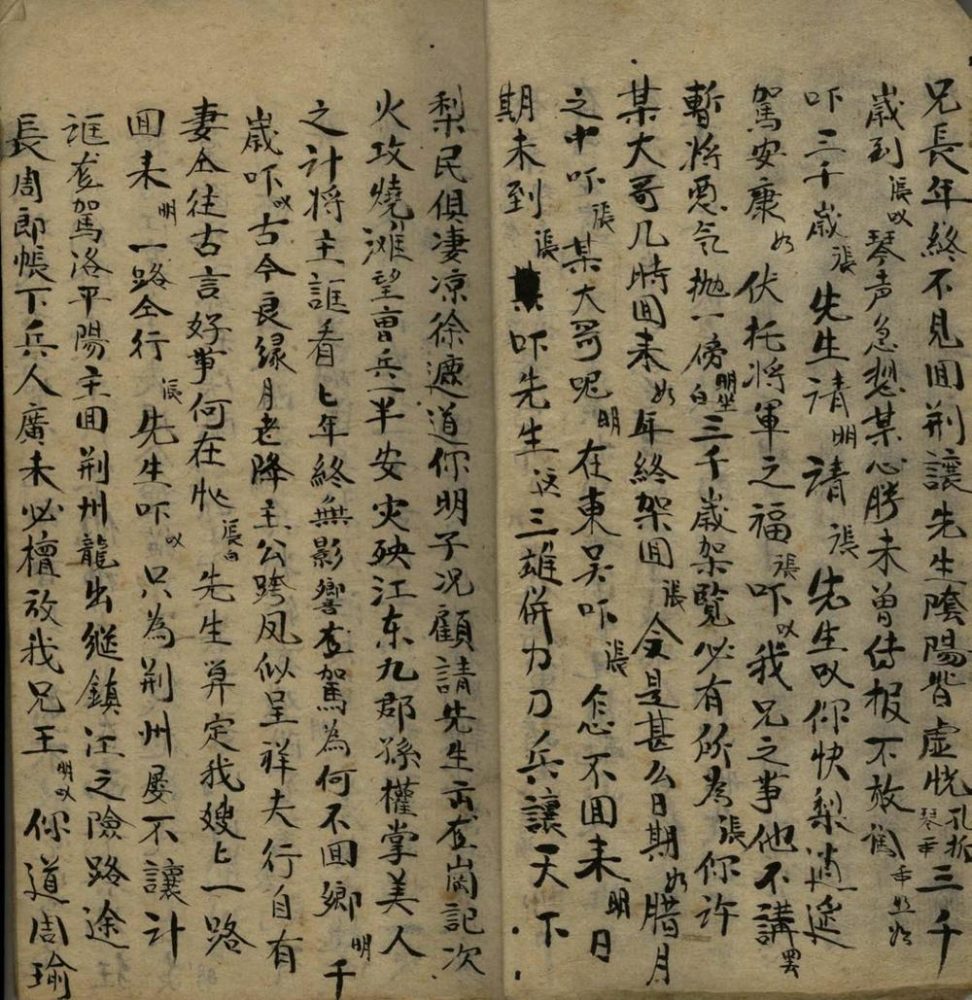 兄長年終不見回荆讓先生隂陽皆虚恍孔抚琴介三千
歲到張叹琴声急想某心腾未曽传报不放闯
吓三千歲張先生请明请張先生叹你快梨逍遥
駕安康如伏托将軍之福張吓叹我兄之事他不講罢
暫将悪气抛一傍明坐白三千歲架覧必有所為張你许
某大哥几時囬来如年終架囬張今是甚么日期如腊月
之中吓張某大哥呢明在東吴吓張怎不囬来明日
期未到張吓先生这三雄併力刀兵讓天下
梨民俱凄凉徐遮道你明子况顧請先生去茅崗記次
火攻燒滩望曹兵一半安灾殃江东九郡孫權掌美人
之计将主誆看匕年終無影響查駕為何不囬鄉明千
歲吓叹古今良缘月老降主公跨凤似呈祥夫行自有
妻仝往古言好事何在忙張白先生算定我嫂匕一路
囬来明一路仝行張先生吓叹只為荆州屡不讓计
誆查駕洛平陽主囬荆州龍出继鎮江之險路途
長周郎帳下兵人廣未必檀放我兄王明叹你道周瑜